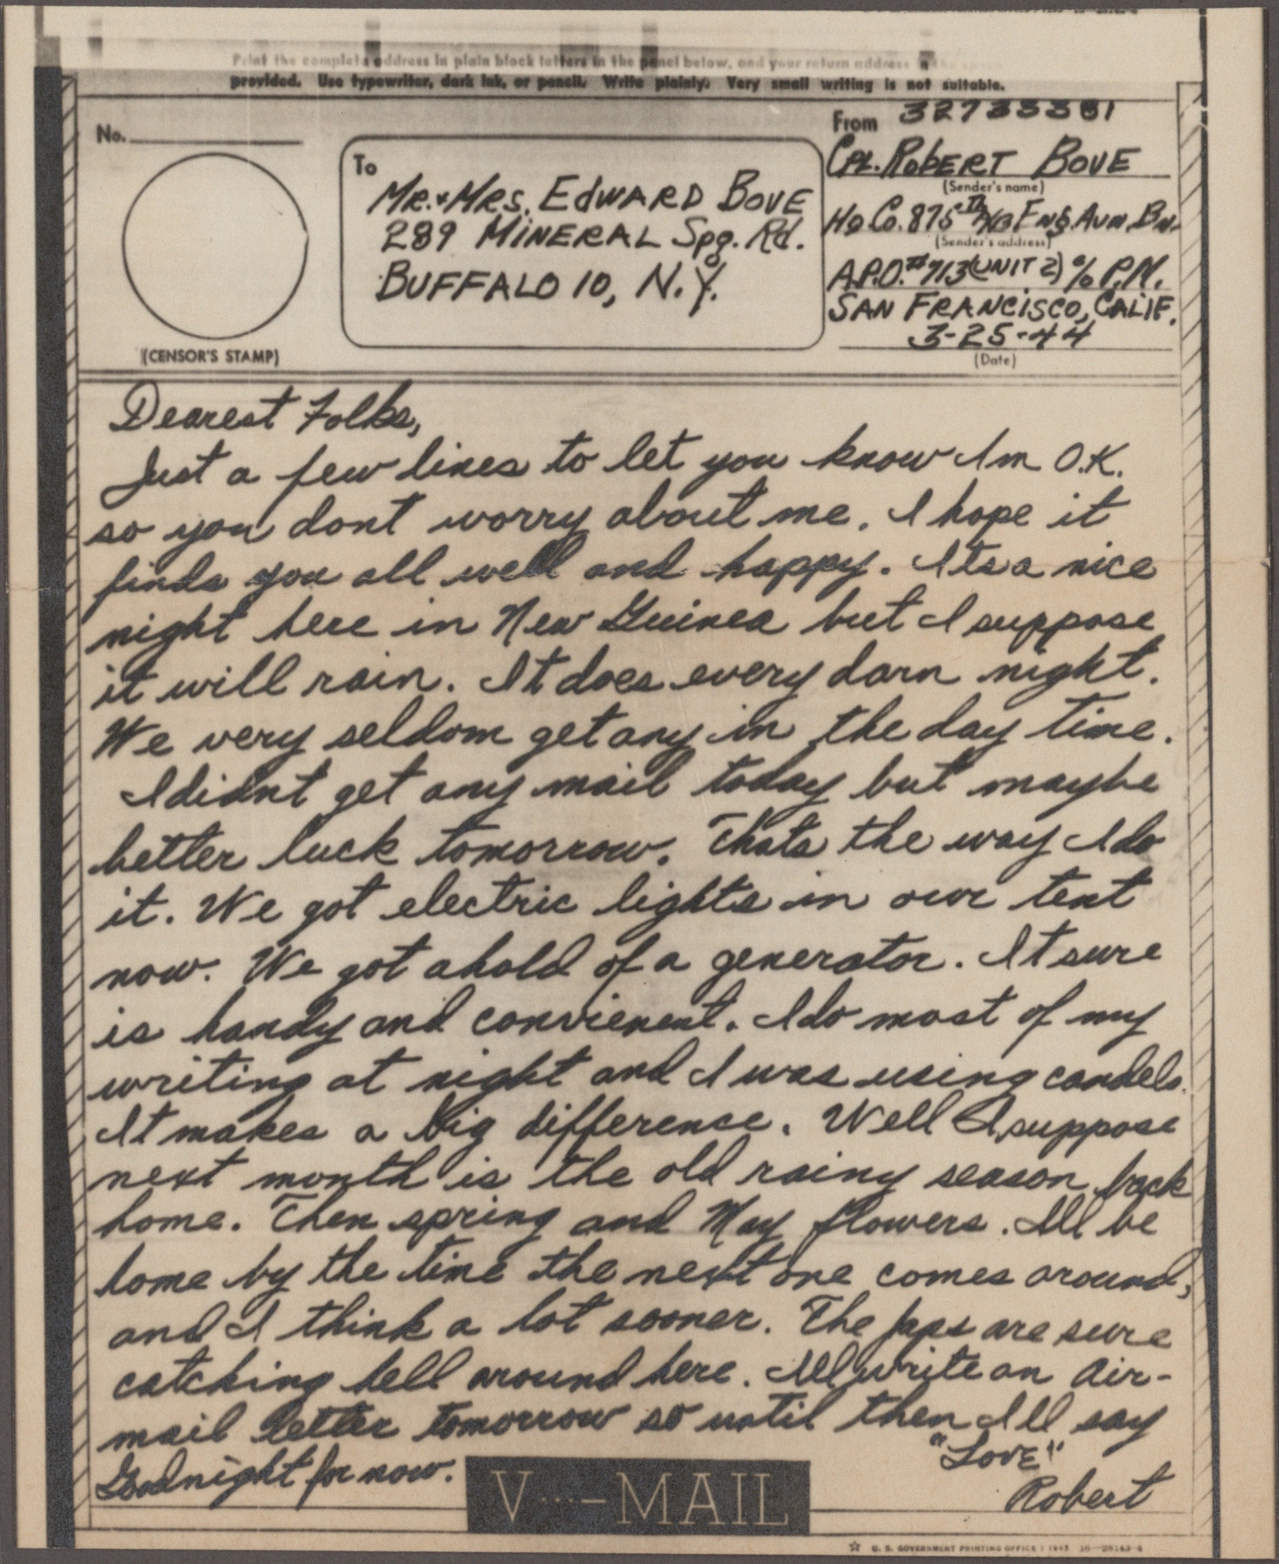 Print the complete address in plain block letters in the panel below, and your return address in the space
provided. Use typewriter, dark ink, or pencil. Write plainly. Very small writing is not suitable.
No.
(CENSOR'S STAMP)
To
Mr. & Mrs. Edward Bove
289 Mineral Spg. Rd.
Buffalo 10, N.Y.
From 32733381
Cpl. Robert Bove
(Sender's name)
Hq. Co. 875th A/B Eng. Avn. Bn.
(Sender's address)
A.P.O. #713 (Unit 2) % P.M.
San Francisco, Calif.
3-25-44
(Date)
Dearest Folks,
Just a few lines to let you know Im O.K.
so you dont worry about me. I hope it
finds you all well and happy. Its a nice
night here in New Guinea but I suppose
it will rain. It does every darn night.
We very seldom get any in the day time.
I didnt get any mail today but maybe
better luck tomorrow. Thats the way I do
it. We got electric lights in our tent
now. We got ahold of a generator. It sure
is handy and convienent. I do most of my
writing at night and I was using candels.
It makes a big difference. Well I suppose
next month is the old rainy season back
home. Then spring and May flowers. Ill be
home by the time the next one comes around,
and I think a lot sooner. The Japs are sure
catching hell around here. Ill write an air-
mail letter tomorrow so until then Ill say
Goodnight for now.
"Love"
Robert
V···—MAIL
☆ U. S. GOVERNMENT PRINTING OFFICE : 1943 16—28143-4